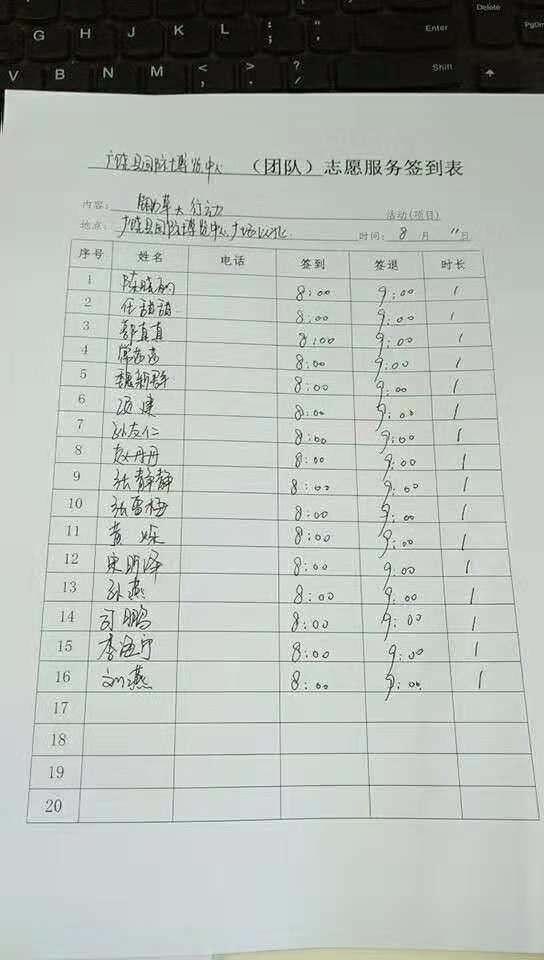 G H J K L Enter
V B N M < > ? Shift
, . /
Delete
PgDn
广饶县国际博览中心 (团队)志愿服务签到表
内容: 锄草大行动 活动(项目)
地点: 广饶县国际博览中心广场以北 时间: 8 月 11 日
序号 姓名 电话 签到 签退 时长
1 陈晓 8:00 9:00 1
2 任喆喆 8:00 9:00 1
3 郭真真 8:00 9:00 1
4 8:00 9:00 1
5 魏新群 8:00 9:00 1
6 项建 8:00 9:00 1
7 孙友仁 8:00 9:00 1
8 赵丹丹 8:00 9:00 1
9 张静静 8:00 9:00 1
10 张雪梅 8:00 9:00 1
11 黄 8:00 9:00 1
12 宋明泽 8:00 9:00 1
13 孙燕 8:00 9:00 1
14 司鹏 8:00 9:00 1
15 李海宁 8:00 9:00 1
16 刘燕 8:00 9:00 1
17
18
19
20